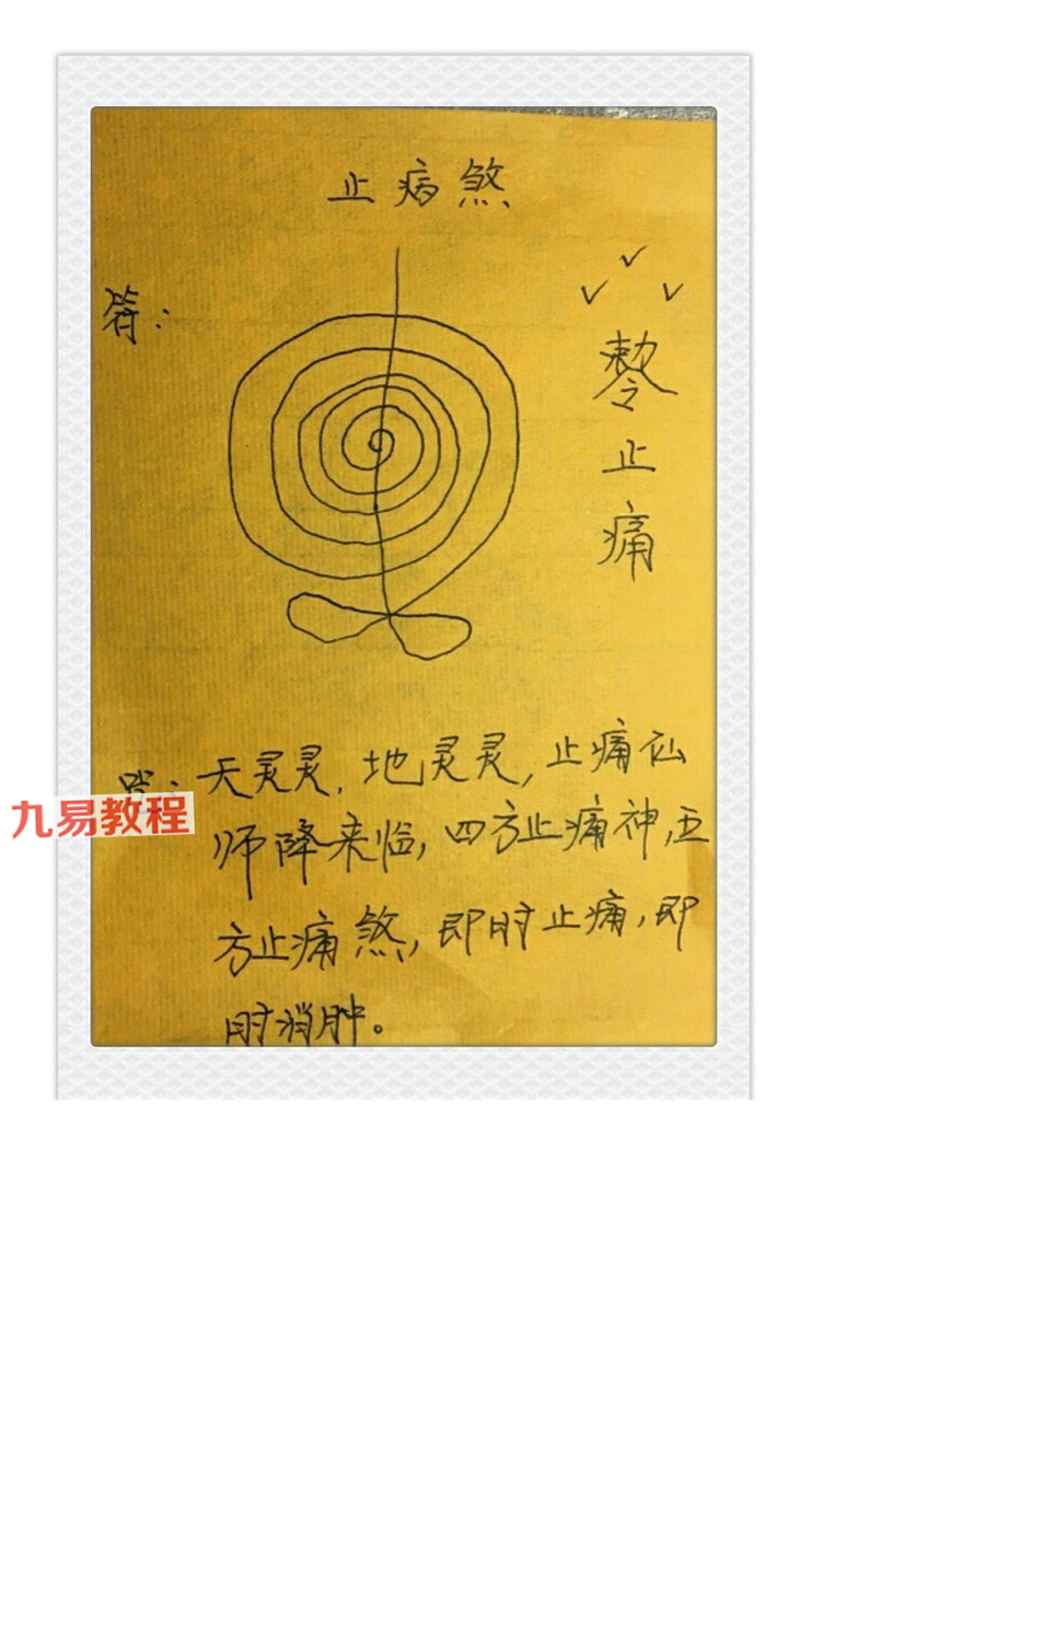 止病煞
符：
敕令
止
痛
咒：天灵灵，地灵灵，止痛仙
九易教程
师降来临，四方止痛神，五
方止痛煞，即时止痛，即
时消肿。